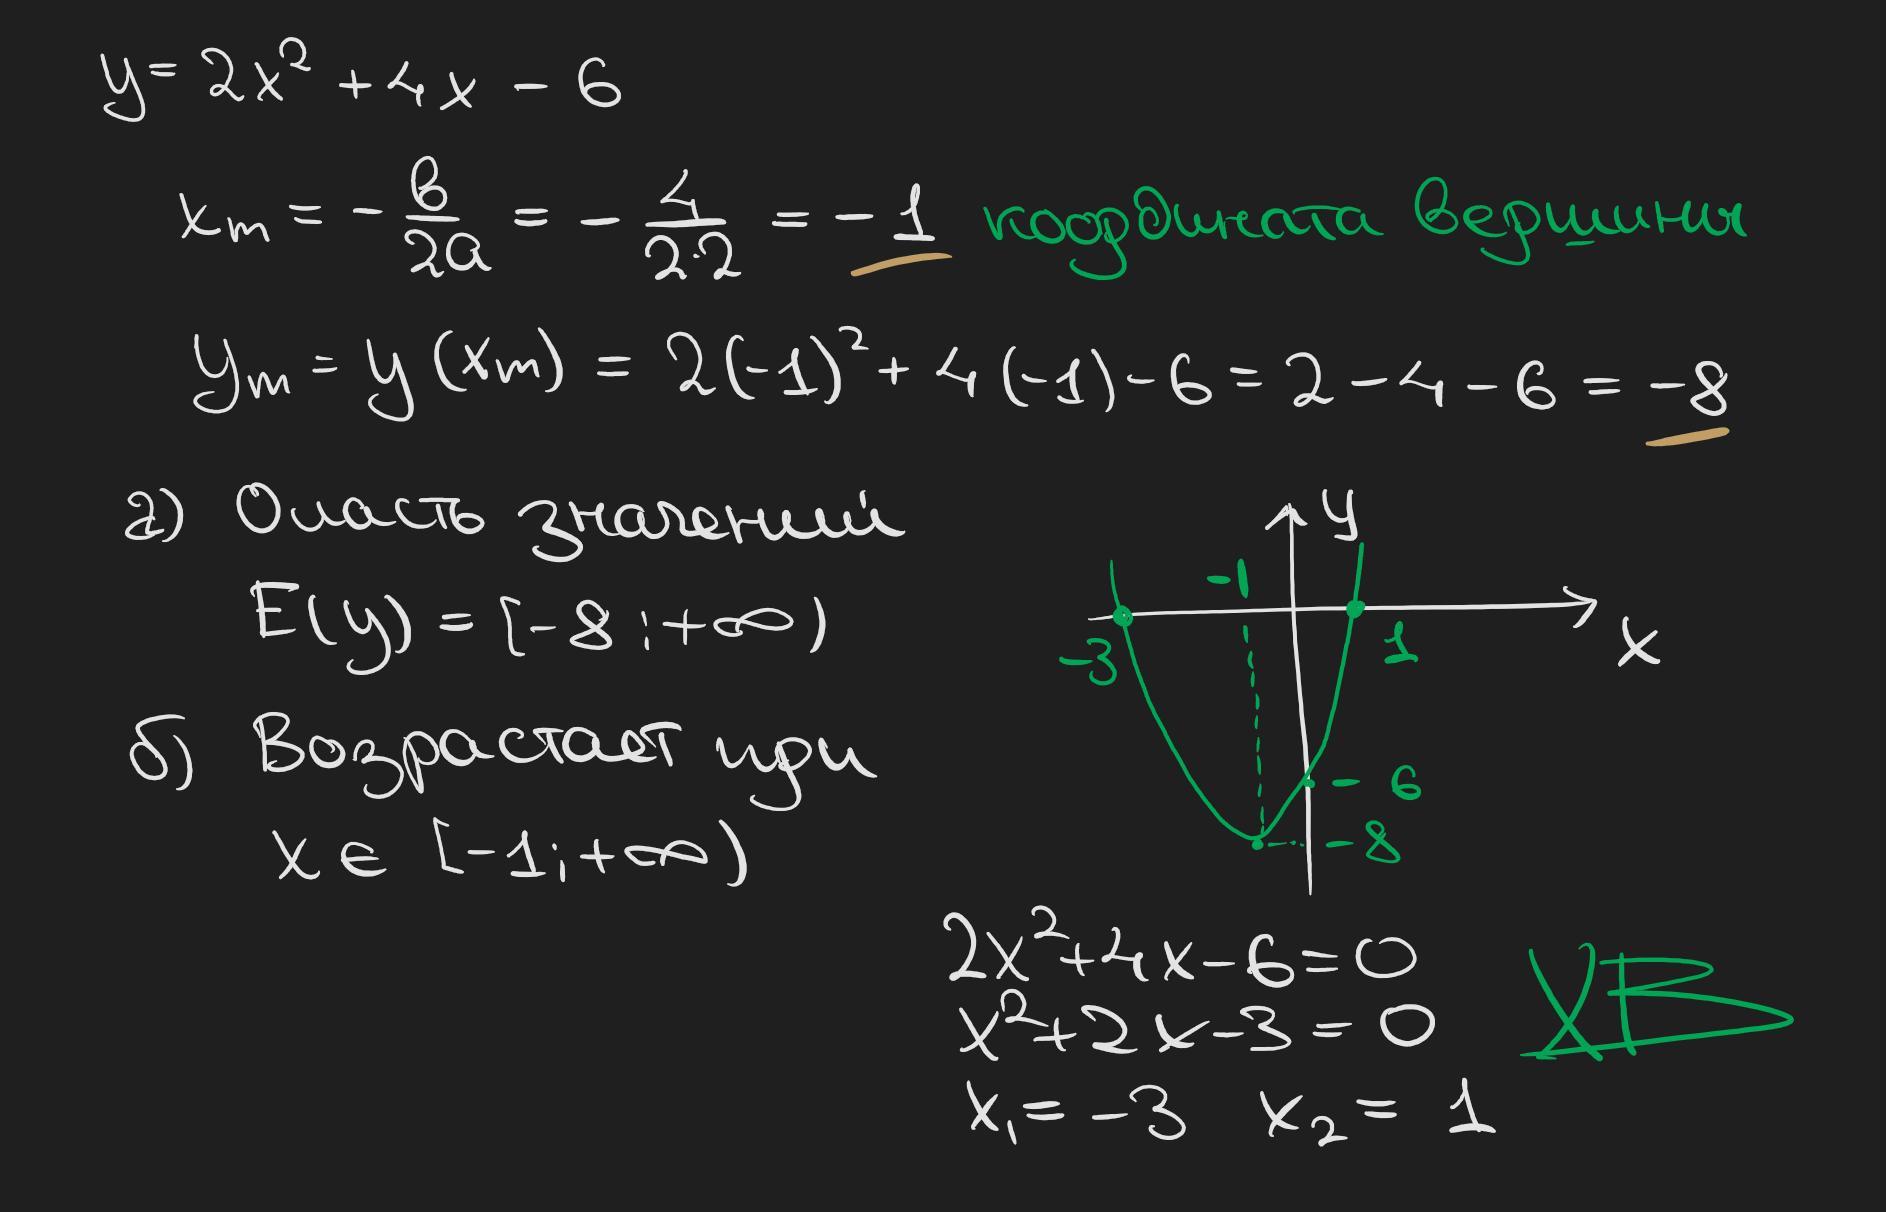 y = 2x² + 4x - 6
xm = - в/2a = - 4/2·2 = -1 координата вершины
ym = y(xm) = 2(-1)² + 4(-1) - 6 = 2 - 4 - 6 = -8
а) Оласть значений
E(y) = [-8;+∞)
б) Возрастает при
x ∈ [-1;+∞)
y
-1
x
-3
1
-6
-8
2x²+4x-6=0
x²+2x-3=0
x₁=-3 x₂=1
XB